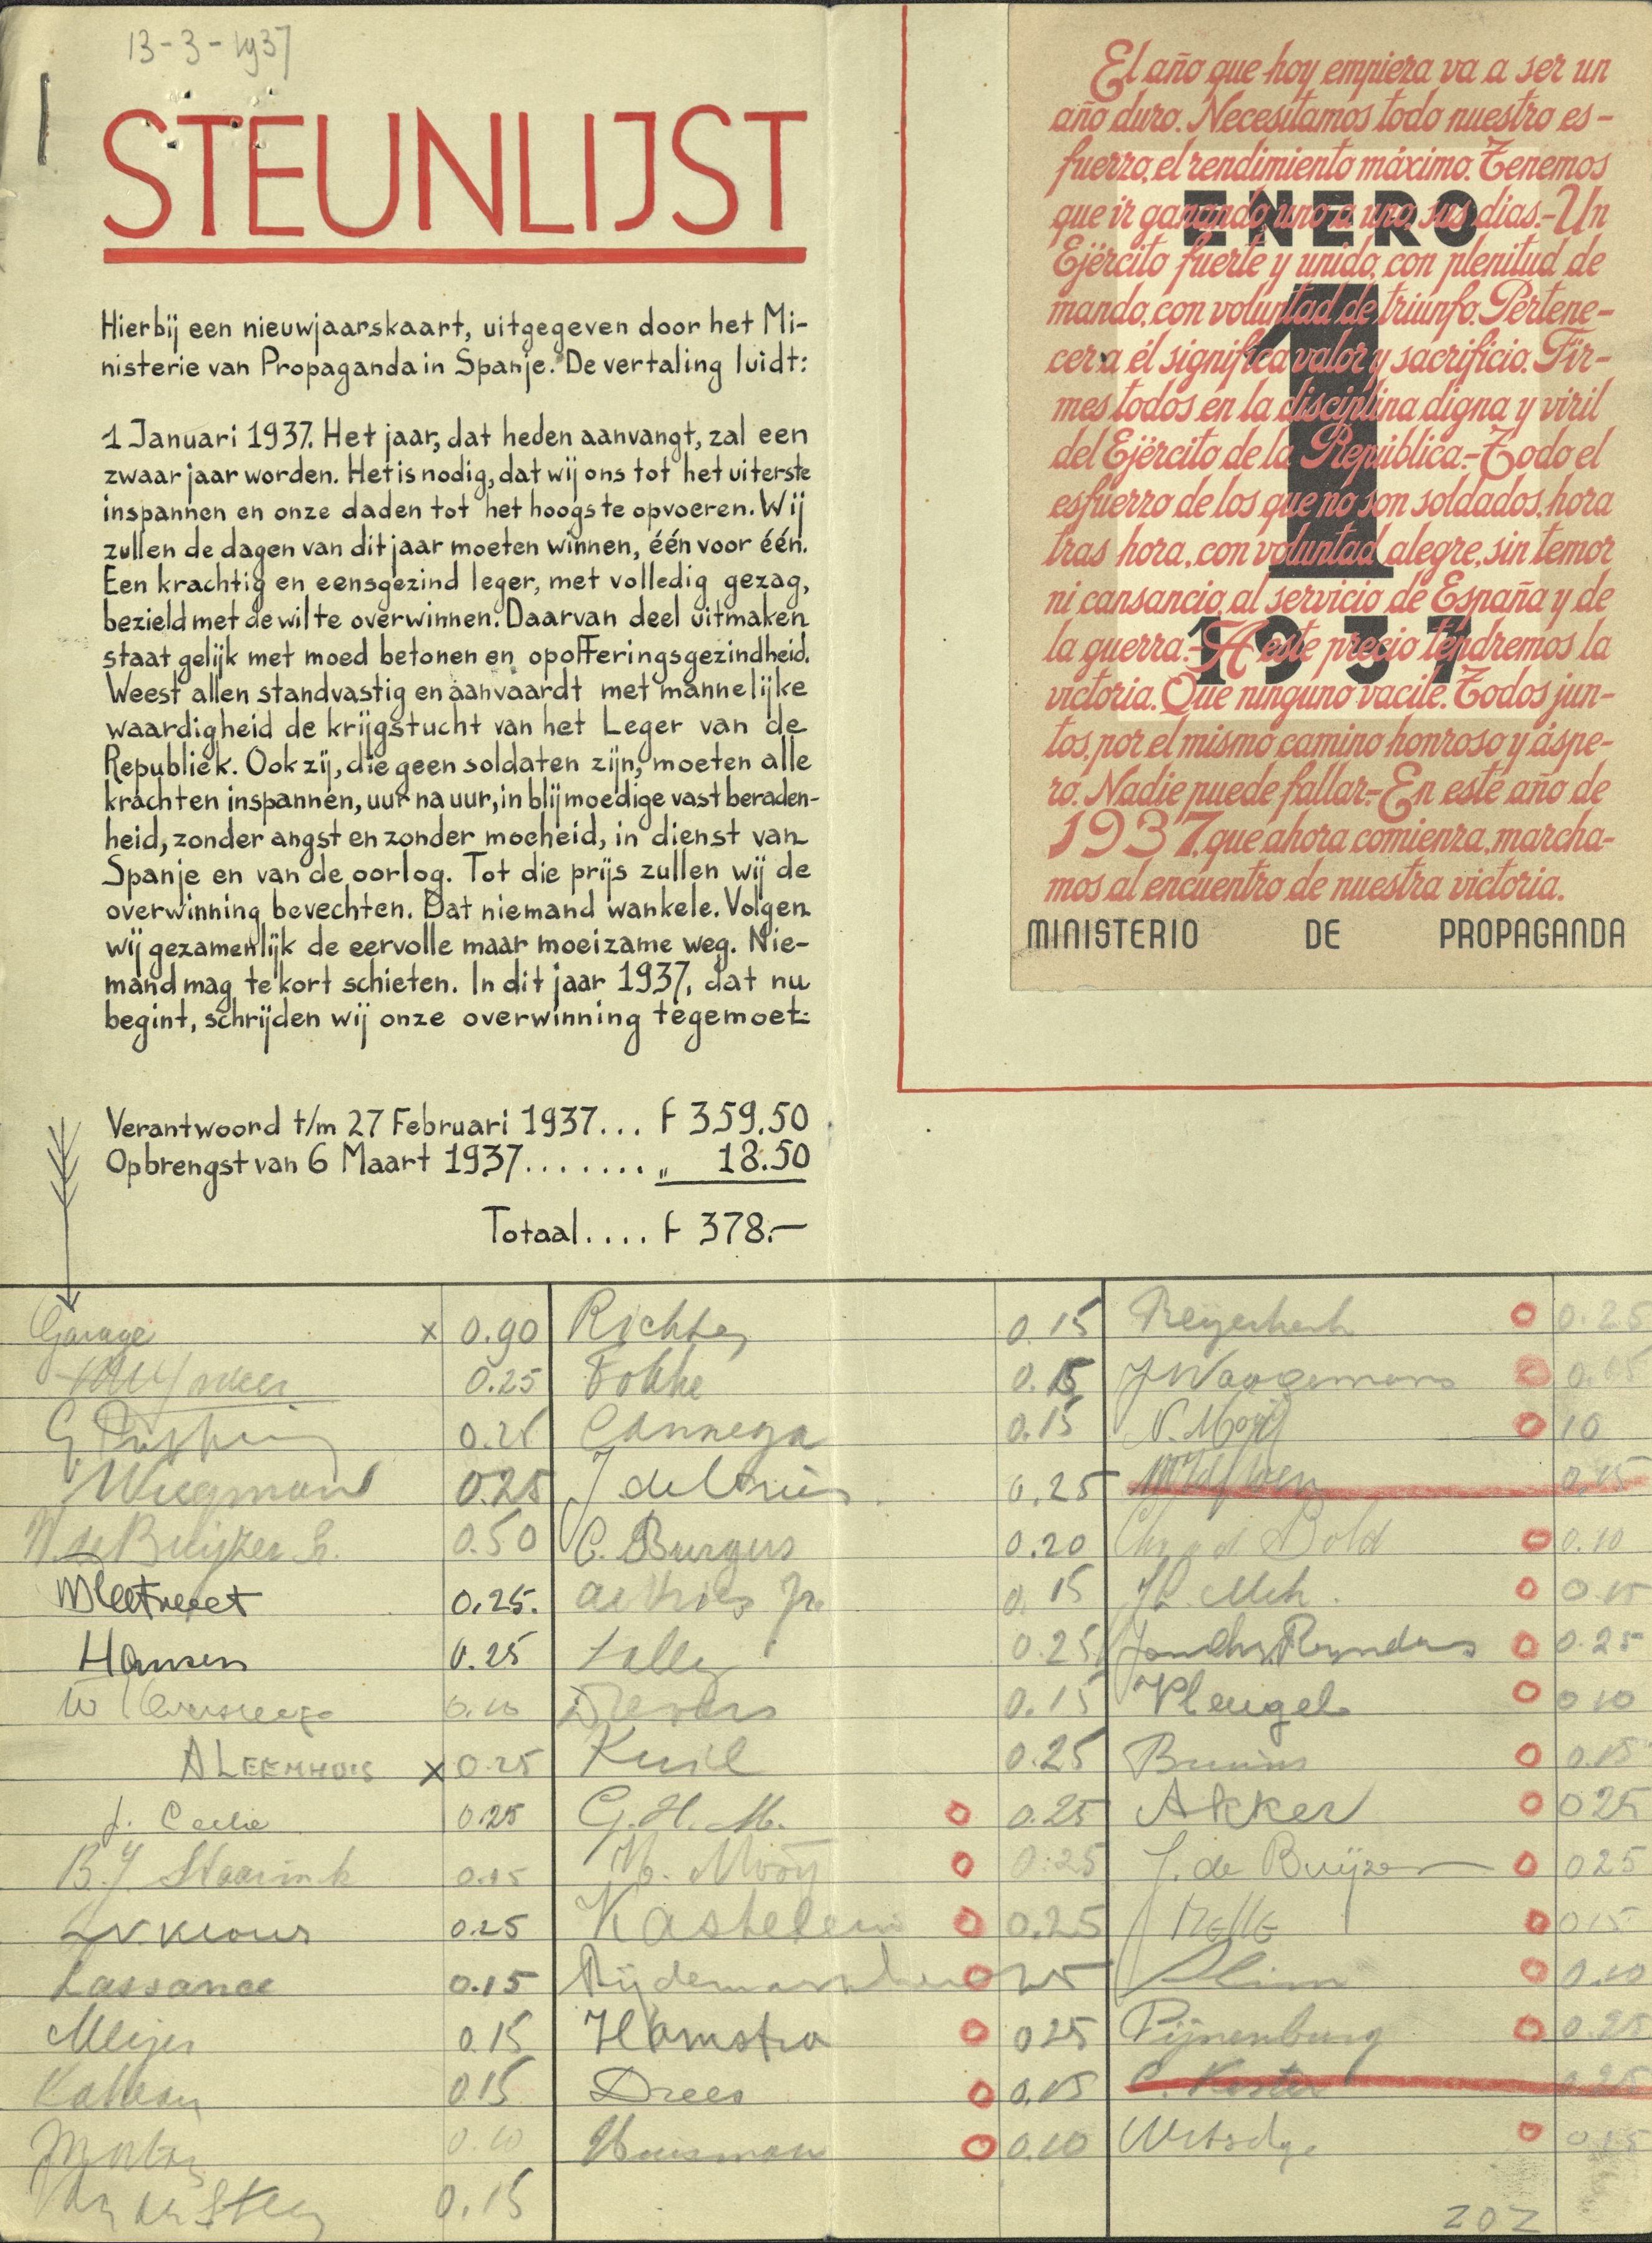 13-3-1937
STEUNLIJST
Hierbij een nieuwjaarskaart, uitgegeven door het Mi-
nisterie van Propaganda in Spanje. De vertaling luidt:
1 Januari 1937. Het jaar, dat heden aanvangt, zal een
zwaar jaar worden. Het is nodig, dat wij ons tot het uiterste
inspannen en onze daden tot het hoogste opvoeren. Wij
zullen de dagen van dit jaar moeten winnen, één voor één.
Een krachtig en eensgezind leger, met volledig gezag,
bezield met de wil te overwinnen. Daarvan deel uitmaken
staat gelijk met moed betonen en opofferingsgezindheid.
Weest allen standvastig en aanvaardt met mannelijke
waardigheid de krijgstucht van het Leger van de
Republiek. Ook zij, die geen soldaten zijn, moeten alle
krachten inspannen, uur na uur, in blijmoedige vastberaden-
heid, zonder angst en zonder moeheid, in dienst van
Spanje en van de oorlog. Tot die prijs zullen wij de
overwinning bevechten. Dat niemand wankele. Volgen
wij gezamenlijk de eervolle maar moeizame weg. Nie-
mand mag te kort schieten. In dit jaar 1937, dat nu
begint, schrijden wij onze overwinning tegemoet.
Verantwoord t/m 27 Februari 1937... f 359.50
Opbrengst van 6 Maart 1937....... „ 18.50
Totaal.... f 378.—
El año que hoy empieza va a ser un
año duro. Necesitamos todo nuestro es-
fuerzo, el rendimiento máximo. Tenemos
que ir ganando uno a uno sus dias.-Un
Ejército fuerte y unido, con plenitud de
mando, con voluntad de triunfo. Pertene-
cer a él significa valor y sacrificio. Fir-
mes todos en la disciplina digna y viril
del Ejército de la República.-Todo el
esfuerzo de los que no son soldados, hora
tras hora, con voluntad alegre, sin temor
ni cansancio, al servicio de España y de
la guerra.-A este precio tendremos la
victoria. Que ninguno vacile. Todos jun-
tos, por el mismo camino honroso y áspe-
ro. Nadie puede fallar.-En este año de
1937, que ahora comienza, marcha-
mos al encuentro de nuestra victoria.
ENERO
1
1937
MINISTERIO DE PROPAGANDA
Garage x 0.90
0.25
G. 0.25
Wiegmans 0.25
W. de Buijzer Sr. 0.50
0.25.
Hansen 0.25
W 0.10
A LEEMHUIS x 0.25
J. 0.25
B.J. Staarink 0.15
0.25
Lassance 0.15
Meijer 0.15
0.15
0.10
0.15
Richter 0.15
Fokke 0.15
Cannega 0.15
J de Vries 0.25
C. Burgers 0.20
de Vries Jr. 0.15
0.25
0.15
Kuil 0.25
G.H.M. 0.25
H. Mooij 0.25
Kastelein 0.25
25
Hamstra 025
Drees 0.15
Huisman 0.10
0.25
J Waagemans 0.05
N. Mooij 10
0.15
Bold 0.10
0.15
Rynders 0.25
Pleugel 0 10
Bruins 0.15
Akker 025
J. de Buijzer 025
015
Slim 0.10
Pijnenburg 0.25
C. Koster 0.25
0.15
202